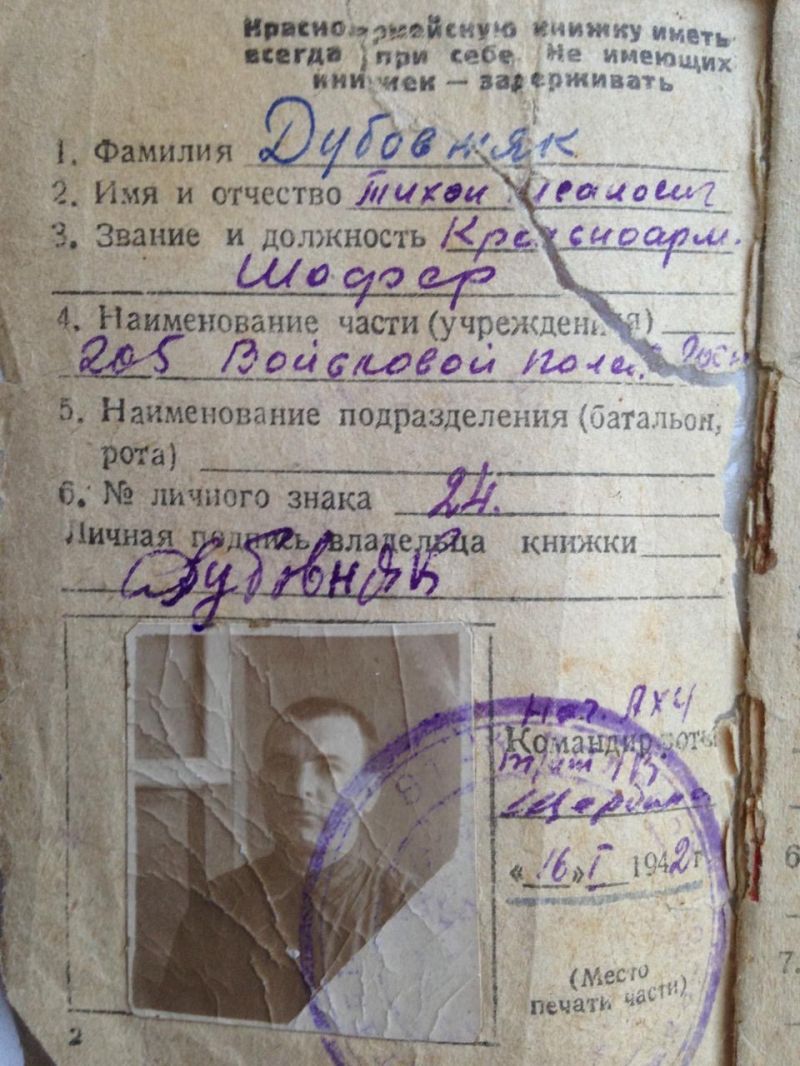 Красноармейскую книжку иметь
всегда при себе. Не имеющих
книжек — задерживать
1. Фамилия Дубовняк
2. Имя и отчество Тихон
3. Звание и должность Красноарм.
Шофер
4. Наименование части (учреждения)
205 Войсковой
5. Наименование подразделения (батальон,
рота)
6. № личного знака 24.
Личная подпись владельца книжки
Дубовняк
Нач АХЧ
Командир роты
Щербина
«16» I 1942 г.
(Место
печати части)
2
6
7.